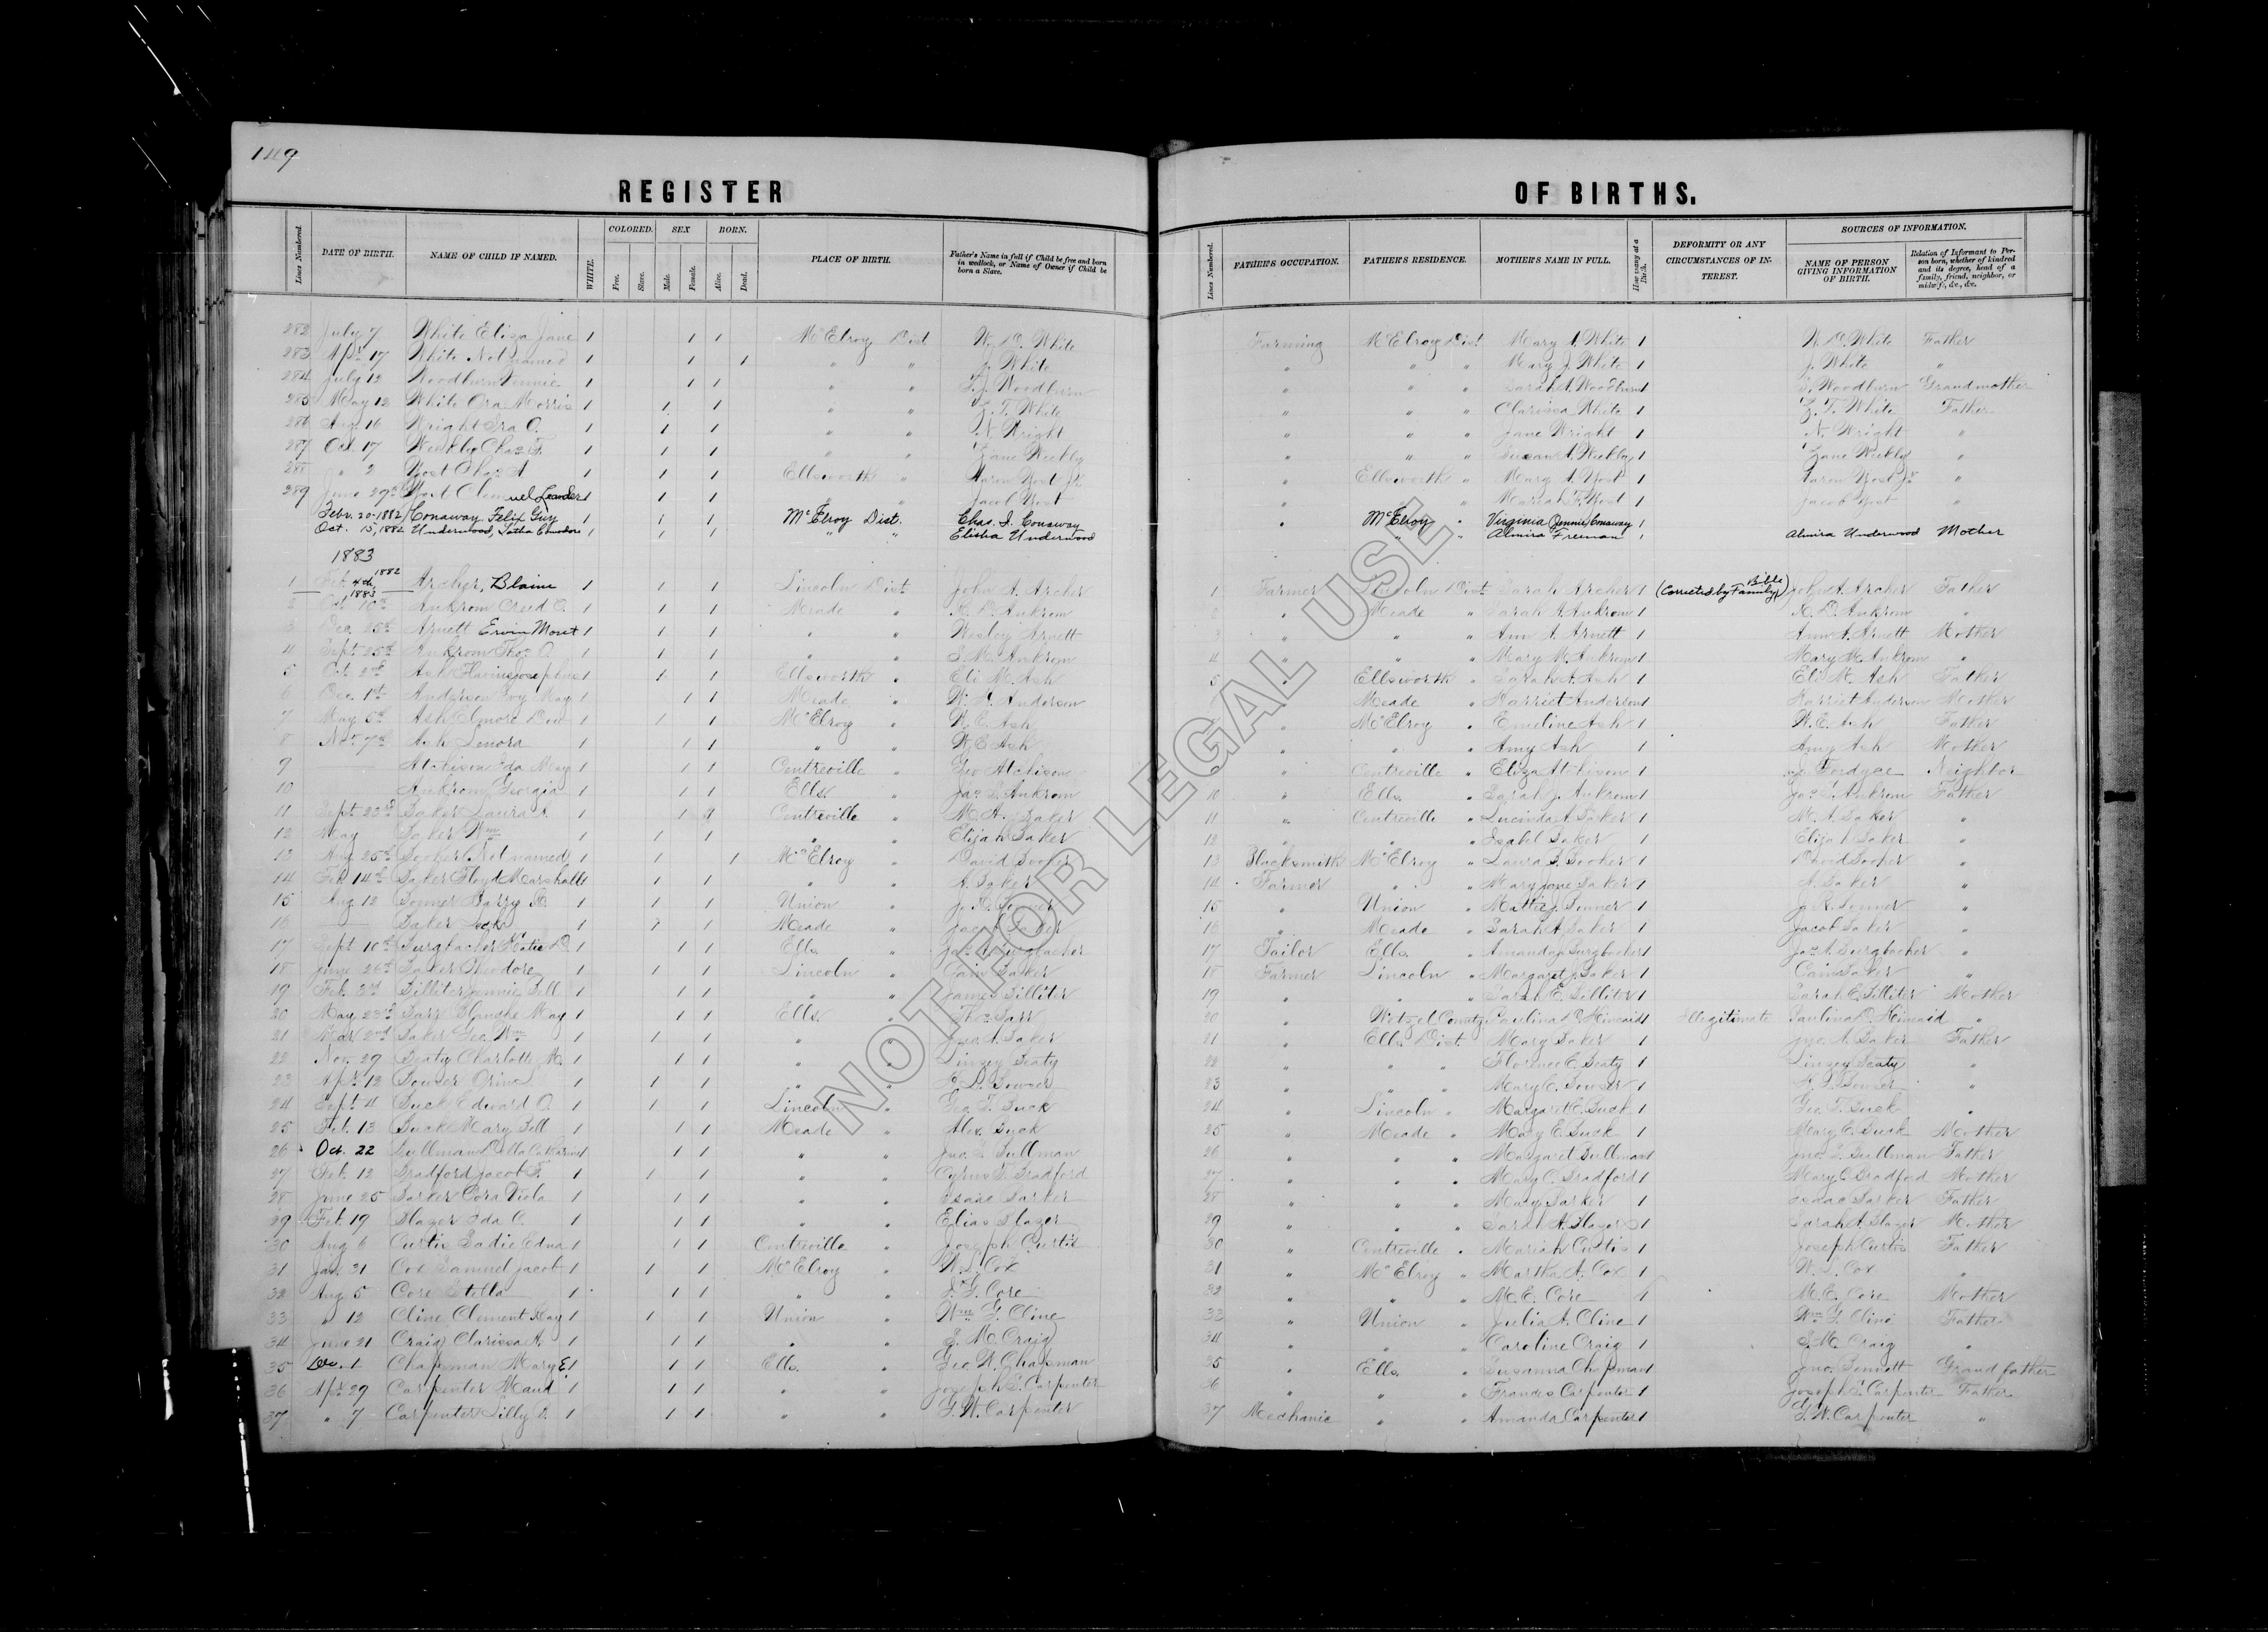 149
REGISTER OF BIRTHS.
Lines Numbered. DATE OF BIRTH. NAME OF CHILD IF NAMED. WHITE. COLORED. Free. Slave. SEX Male. Female. BORN. Alive. Dead. PLACE OF BIRTH. Father's Name in full if Child be free and born in wedlock, or Name of Owner if Child be born a Slave.
Lines Numbered. FATHER'S OCCUPATION. FATHER'S RESIDENCE. MOTHER'S NAME IN FULL. How many at a Birth. DEFORMITY OR ANY CIRCUMSTANCES OF INTEREST. SOURCES OF INFORMATION. NAME OF PERSON GIVING INFORMATION OF BIRTH. Relation of Informant to Person born, whether of kindred and its degree, head of a family, friend, neighbor, or midwife, &c., &c.
282 July 7 White Eliza Jane 1 1 1 McElroy Dist W. D. White Farming McElroy Dist Mary A. White 1 W. D. White Father
283 Apr 17 White Not named 1 1 1 " " J. White " " " Mary J. White 1 J. White "
284 July 12 Woodburn 1 1 1 " " Woodburn " " " Sarah A. Woodburn 1 Woodburn Grandmother
285 May 12 White Ora Morris 1 1 1 " " Z. T. White " " " Clarissa White 1 Z. T. White Father
286 Aug. 16 Wright Ira O. 1 1 1 " " N. Wright " " " Jane Wright 1 N. Wright "
287 Oct. 17 Weekly Chas. F. 1 1 1 " " Zane Weekly " " " Susan A. Weekly 1 Zane Weekly "
288 " 2 Yost Chas A. 1 1 1 Ellsworth " Aaron Yost Jr. " Ellsworth " Mary A. Yost 1 Aaron Yost Jr "
289 June 29th Yost Clemuel Leander 1 1 1 " " Jacob Yost " " " Mariah F. Yost 1 Jacob Yost "
Febr. 20-1882 Conaway Felix Guy 1 1 1 McElroy Dist. Chas. I. Conaway " McElroy " Virginia (Jennie) Conaway 1
Oct. 15, 1882 Underwood, 1 1 1 " " Elisha Underwood " " Almira Freeman 1 Almira Underwood Mother
1883
1 Feb. 4th, 1882 Archer, Blaine 1 1 1 Lincoln Dist John A. Archer 1 Farmer Lincoln Dist Sarah Archer 1 (Corrected by Family Bible) John A. Archer Father
2 1883 Oct 10th Ankrom Creed O. 1 1 1 Meade " Ankrom " Meade " Sarah A. Ankrom 1 Ankrom "
3 Dec. 25th Arnett Ervin 1 1 1 " " Wesley Arnett " " " Ann A. Arnett 1 Ann A. Arnett Mother
4 Sept 25th Ankrom Thos. O. 1 1 1 " " S. M. Ankrom 4 " " " Mary M. Ankrom 1 Mary M. Ankrom "
5 Oct. 2nd Ash Flavius Josephus 1 1 1 Ellsworth " Eli M. Ash 5 " Ellsworth " Sarah A. Ash 1 Eli M. Ash Father
6 Dec. 1st Anderson Ivy May 1 1 1 Meade " Anderson " Meade " Harriet Anderson 1 Harriet Anderson Mother
7 May 5th Ash Elmore 1 1 1 McElroy " W. E. Ash " McElroy " Emeline Ash 1 W. E. Ash Father
8 Nov. 7th Ash Lenora 1 1 1 " " W. E. Ash " " " Amy Ash 1 Amy Ash Mother
9 Atchison Ida May 1 1 1 Centreville " Geo Atchison " Centreville " Eliza Atchison 1 Fordyce Neighbor
10 Ankrom Georgia 1 1 1 Ells. " Jas. Ankrom 10 " Ells. " Sarah J. Ankrom 1 Jas. Ankrom Father
11 Sept 23rd Baker Laura 1 1 1 Centreville " M. A. Baker 11 " Centreville " Lucinda A. Baker 1 M. A. Baker "
12 May Baker Wm 1 1 1 " " Elijah Baker 12 " " " Isabel Baker 1 Elijah Baker "
13 Aug 25th Booher Not named 1 1 1 McElroy " David Booher 13 Blacksmith McElroy " Laura B. Booher 1 David Booher "
14 Feb 14th Baker Floyd Marshall 1 1 1 " " A. Baker 14 Farmer " " Mary Jane Baker 1 A. Baker "
15 Aug 12 Bonner Harry R. 1 1 1 Union " J. R. Bonner 15 " Union " Mattie J. Bonner 1 J. R. Bonner "
16 Baker 1 1 1 Meade " Jacob Baker 16 " Meade " Sarah A. Baker 1 Jacob Baker "
17 Sept 10th Burgbacher Katie D. 1 1 1 Ells. " Jas. A. Burgbacher 17 Tailor Ells. " Amanda J. Burgbacher 1 Jas. A. Burgbacher "
18 June 26th Baker Theodore 1 1 1 Lincoln " Cain Baker 18 Farmer Lincoln " Margaret J. Baker 1 Cain Baker "
19 Feb. 3rd Billiter Jennie Bell 1 1 1 " " James Billiter 19 " " " Sarah E. Billiter 1 Sarah E. Billiter Mother
20 May 23rd Barr Blanche May 1 1 1 Ells. " Thos Barr 20 " Wetzel County Paulina D. Kincaid 1 Illegitimate Paulina D. Kincaid "
21 Mar 2nd Baker Geo. Wm 1 1 1 " " Jno. A. Baker 21 " Ells. Dist. Mary Baker 1 Jno. A. Baker Father
22 Nov. 29 Beaty Charlotte M. 1 1 1 " " Linzey Beaty 22 " " " Florence E. Beaty 1 Linzey Beaty "
23 Apr 12 Bowser 1 1 1 " " Bowser 23 " " " Mary C. Bowser 1 Bowser "
24 Sept. 4 Buck Edward O. 1 1 1 Lincoln " Geo. T. Buck 24 " Lincoln " Margaret E. Buck 1 Geo. T. Buck "
25 Feb. 13 Buck Mary Bell 1 1 1 Meade " Alex. Buck 25 " Meade " Mary E. Buck 1 Mary E. Buck Mother
26 Oct. 22 Bullman Della Catharine 1 1 1 " " Jno. S. Bullman 26 " " " Margaret Bullman 1 Jno. S. Bullman Father
27 Feb. 12 Bradford Jacob F. 1 1 1 " " Cyrus F. Bradford 27 " " " Mary C. Bradford 1 Mary C. Bradford Mother
28 June 25 Barker Cora Viola 1 1 1 " " Isaac Barker 28 " " " Mary Barker 1 Isaac Barker Father
29 Feb. 19 Blazer Ida C. 1 1 1 " " Elias Blazer 29 " " " Sarah A. Blazer 1 Sarah A. Blazer Mother
30 Aug 6 Curtis Sadie Edna 1 1 1 Centreville " Joseph Curtis 30 " Centreville " Mariah Curtis 1 Joseph Curtis Father
31 Jan. 31 Cox Samuel Jacob 1 1 1 McElroy " Cox 31 " McElroy " Martha A. Cox 1 Cox "
32 Aug 5 Core Stella 1 1 1 " " Core 32 " " " M. E. Core 1 M. E. Core Mother
33 " 12 Cline Clement Ray 1 1 1 Union " Wm G. Cline 33 " Union " Julia A. Cline 1 Wm G. Cline Father
34 June 21 Craig Clarissa A. 1 1 1 " " S. M. Craig 34 " " " Caroline Craig 1 S. M. Craig "
35 Dec. 1 Chapman Mary E. 1 1 1 Ells. " Geo. W. Chapman 35 " Ells. " Susanna Chapman 1 Jno. Bennett Grand father
36 Apr 29 Carpenter Maud 1 1 1 " " Joseph S. Carpenter 36 " " " Frances Carpenter 1 Joseph S. Carpenter Father
37 " 7 Carpenter Lilly 1 1 1 " " G. W. Carpenter 37 Mechanic " " Amanda Carpenter 1 G. W. Carpenter "
NOT FOR LEGAL USE